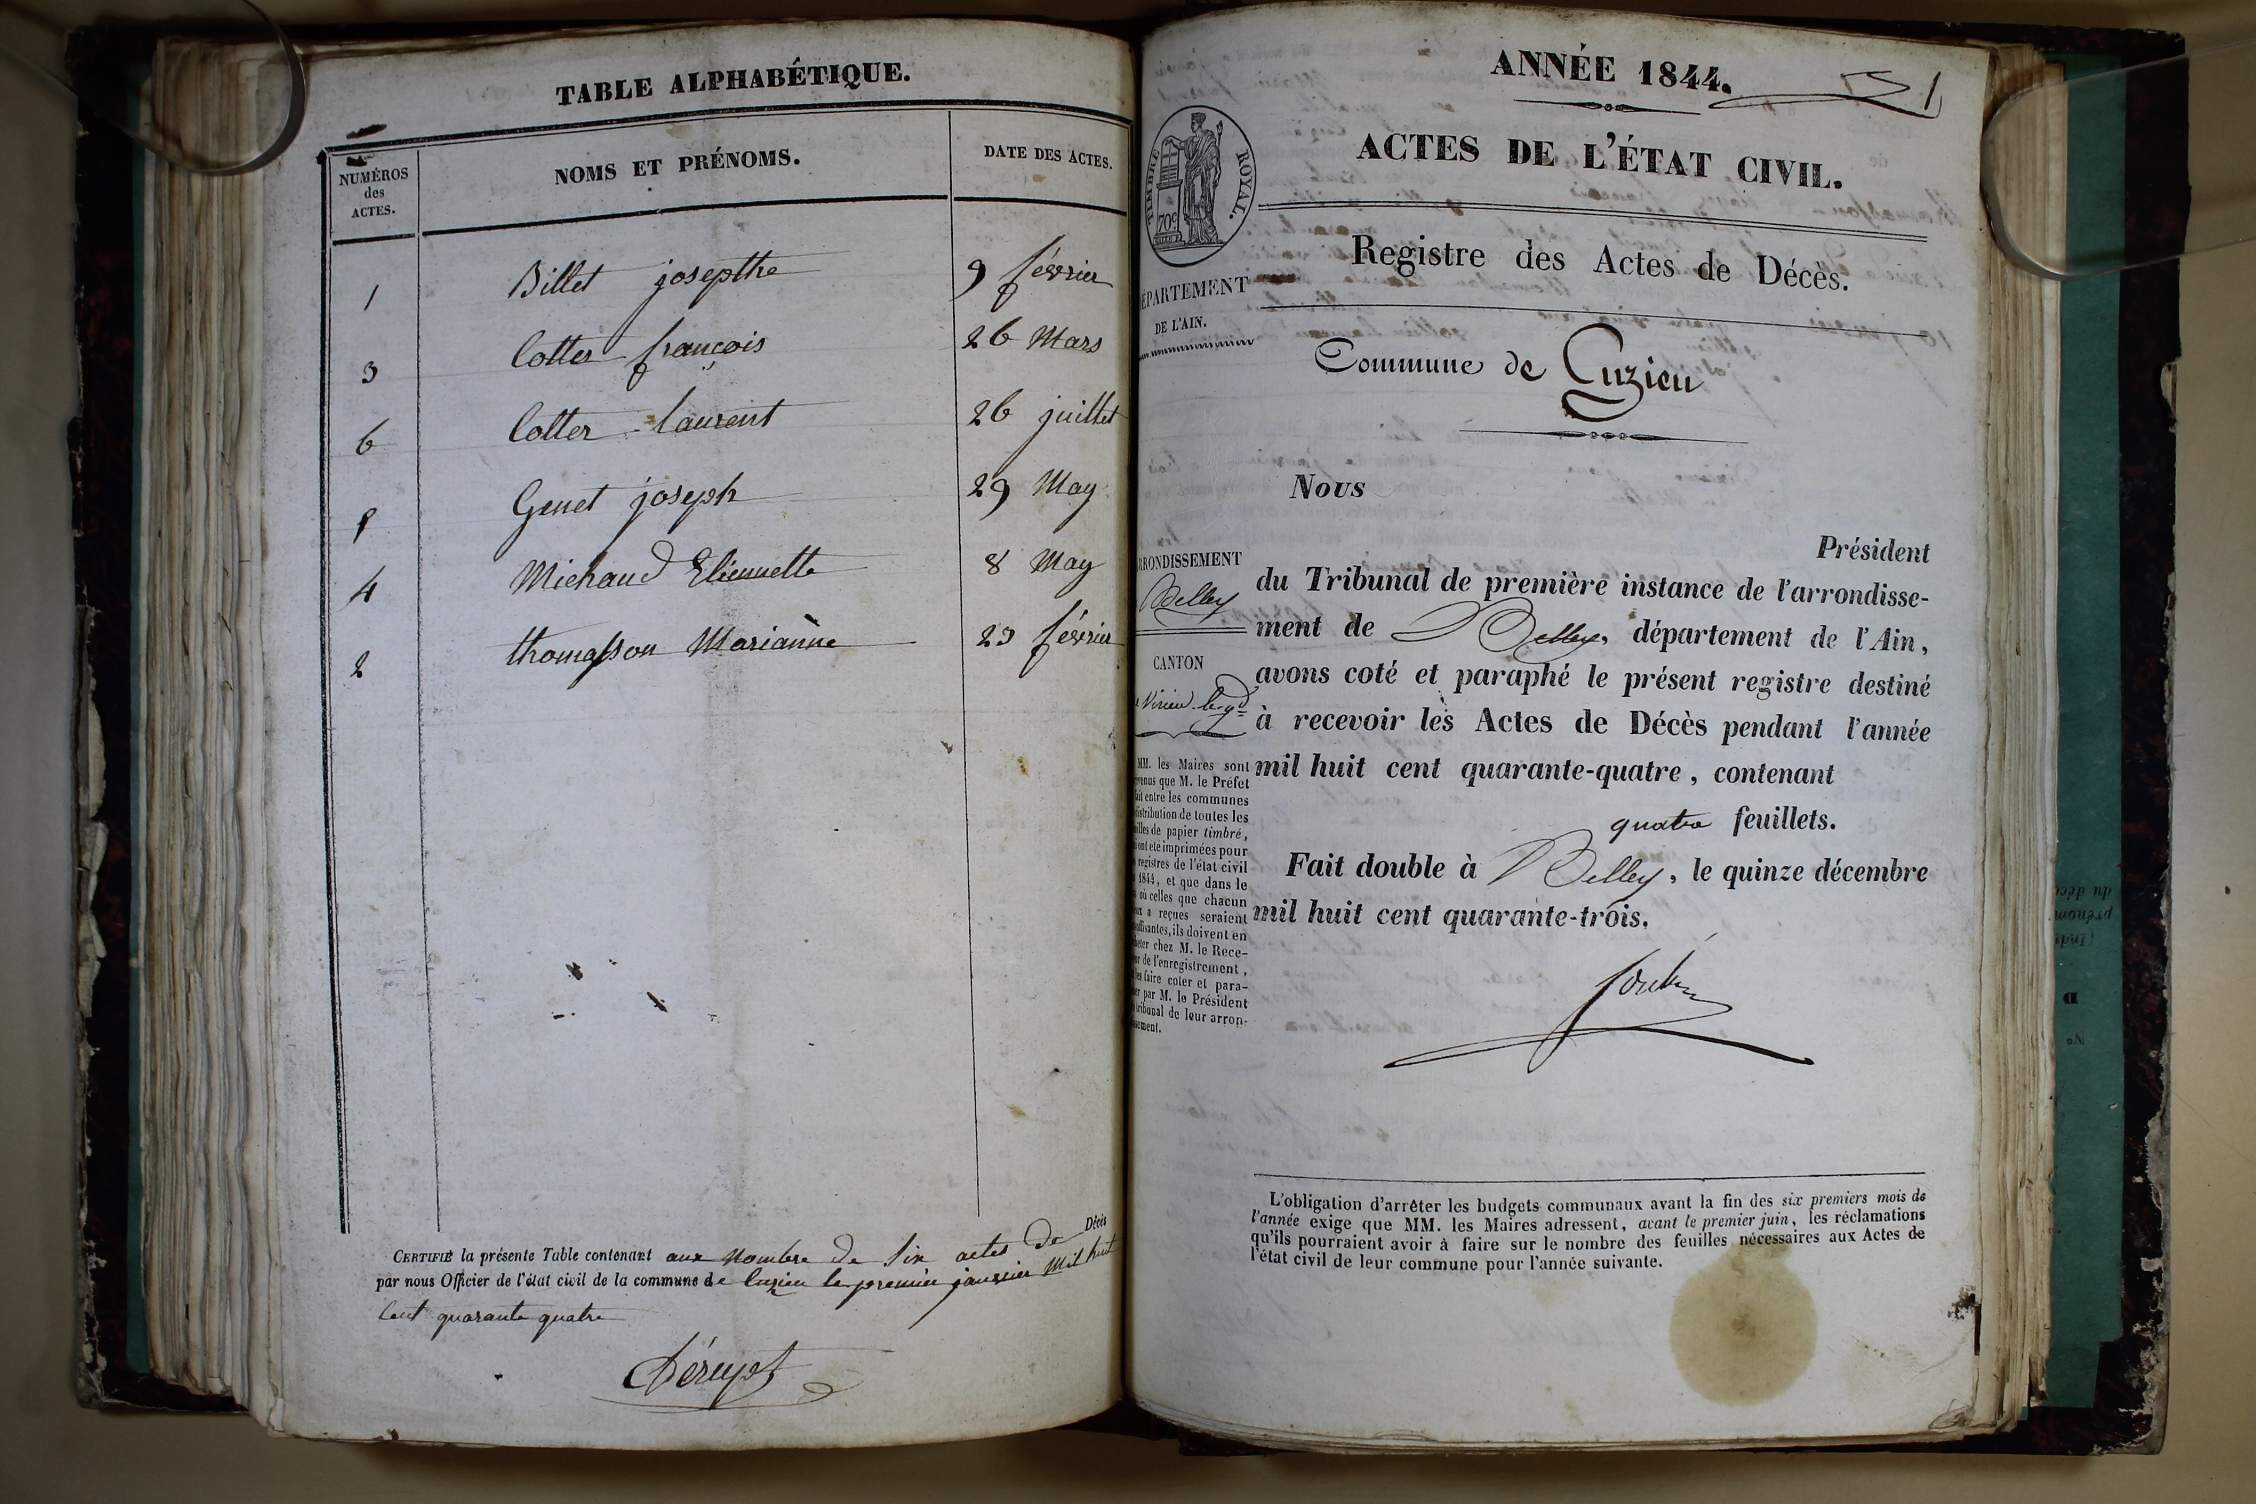 TABLE ALPHABÉTIQUE.
NUMÉROS
des
ACTES.
NOMS ET PRÉNOMS.
DATE DES ACTES.
1 Billet josepthe 9 février
3 Cotter françois 26 Mars
6 Cotter laurent 26 juillet
Genet joseph 29 May
4 Michaud Etiennette 8 May
2 thomasson Marianne 23 février
Décès
CERTIFIÉ la présente Table contenant aux nombre de Six actes de
par nous Officier de l'état civil de la commune de Cuzieu le premier janvier Mil huit
Cent quarante quatre
ANNÉE 1844.
1
ACTES DE L'ÉTAT CIVIL.
TIMBRE ROYAL.
70c
Registre des Actes de Décès.
DÉPARTEMENT
DE L'AIN.
Commune de Cuzieu
Nous
Président
du Tribunal de première instance de l'arrondisse-
ment de Belley, département de l'Ain,
avons coté et paraphé le présent registre destiné
à recevoir les Actes de Décès pendant l'année
mil huit cent quarante-quatre, contenant
quatre feuillets.
Fait double à Belley, le quinze décembre
mil huit cent quarante-trois.
RRONDISSEMENT
Belley
CANTON
Virieu-le-gd
MM. les Maires sont
venus que M. le Préfet
fait entre les communes
distribution de toutes les
illes de papier timbré,
ont été imprimées pour
registres de l'état civil
1844, et que dans le
où celles que chacun
eux a reçues seraient
suffisantes, ils doivent en
heter chez M. le Rece-
ur de l'enregistrement,
les faire coter et para-
er par M. le Président
tribunal de leur arron-
ssement.
L'obligation d'arrêter les budgets communaux avant la fin des six premiers mois de
l'année exige que MM. les Maires adressent, avant le premier juin, les réclamations
qu'ils pourraient avoir à faire sur le nombre des feuilles nécessaires aux Actes de
l'état civil de leur commune pour l'année suivante.